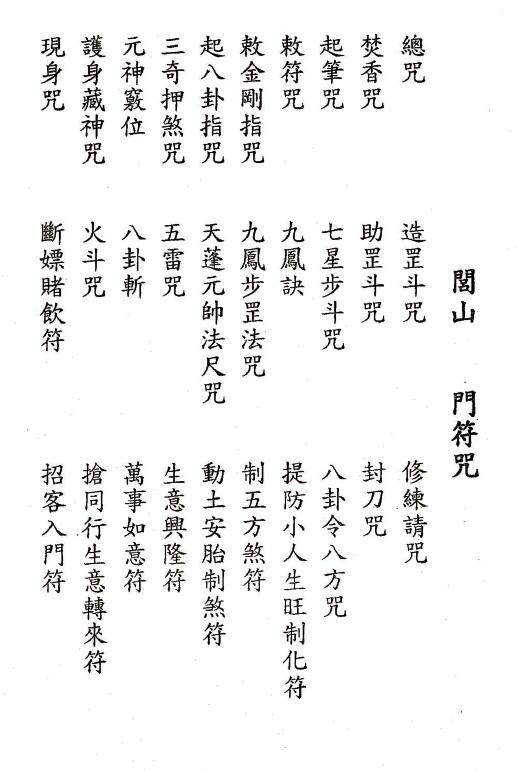 閭山 門符咒
總咒
焚香咒
起筆咒
敕符咒
敕金剛指咒
起八卦指咒
三奇押煞咒
元神竅位
護身藏神咒
現身咒
造罡斗咒
助罡斗咒
七星步斗咒
九鳳訣
九鳳步罡法咒
天蓬元帥法尺咒
五雷咒
八卦斬
火斗咒
斷嫖賭飲符
修練請咒
封刀咒
八卦令八方咒
提防小人生旺制化符
制五方煞符
動土安胎制煞符
生意興隆符
萬事如意符
搶同行生意轉來符
招客入門符